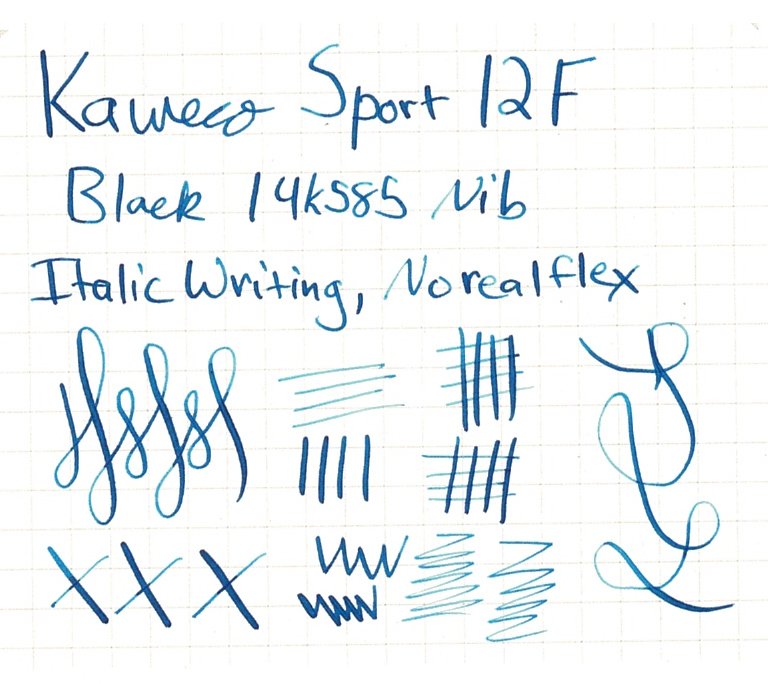 Kaweco Sport 12F
Black 14k585 Nib
Italic Writing, No real flex